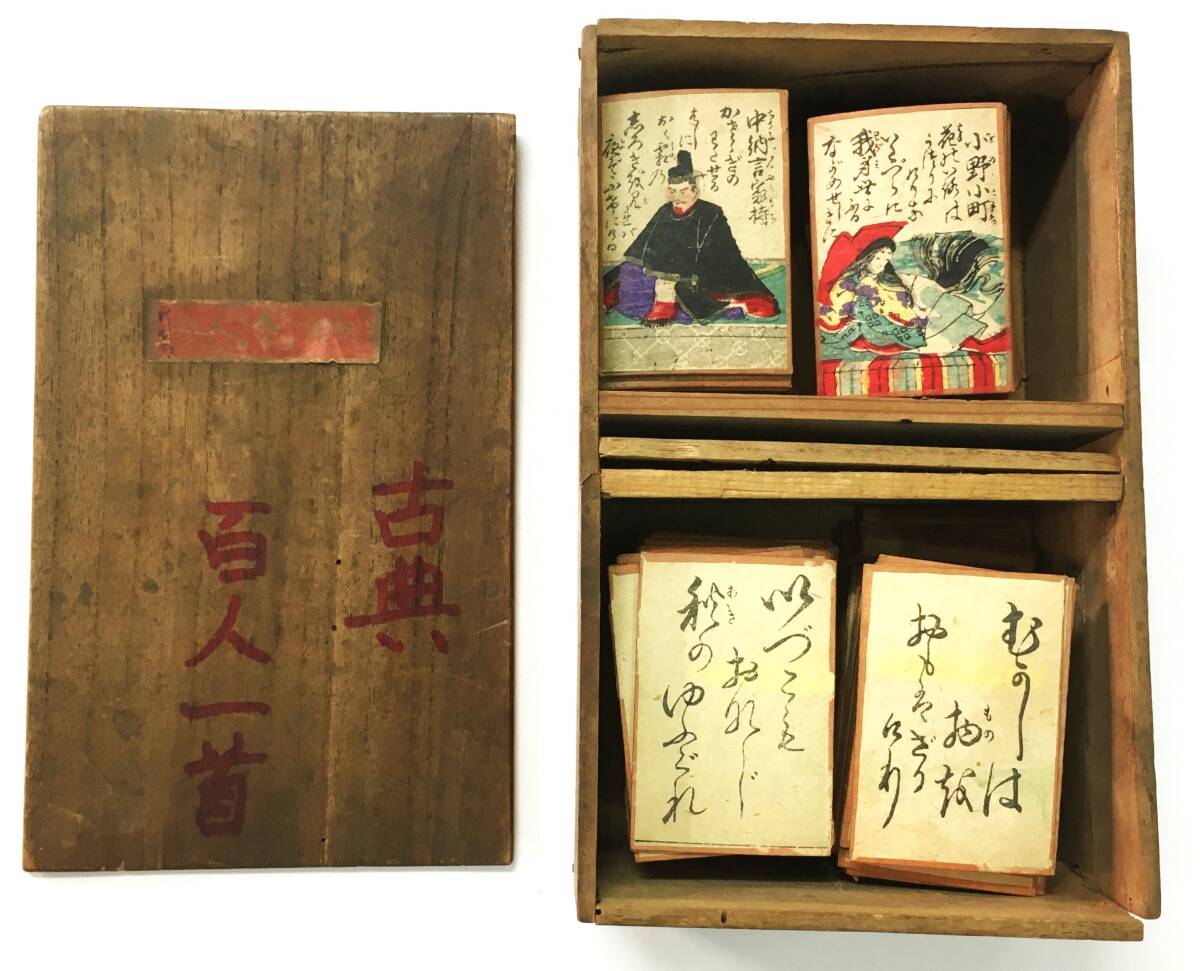 古典
百人一首
中納言家持
かさゝぎの
わたせる
はしに
おく霜の
志ろきを見れば
夜ぞふけにける
小野小町
花のいろは
うつりに
けりな
いたづらに
我身世にふる
ながめせしまに
いづこも
おなじ
秋のゆふぐれ
むかしは
物を
おもはざり
けり